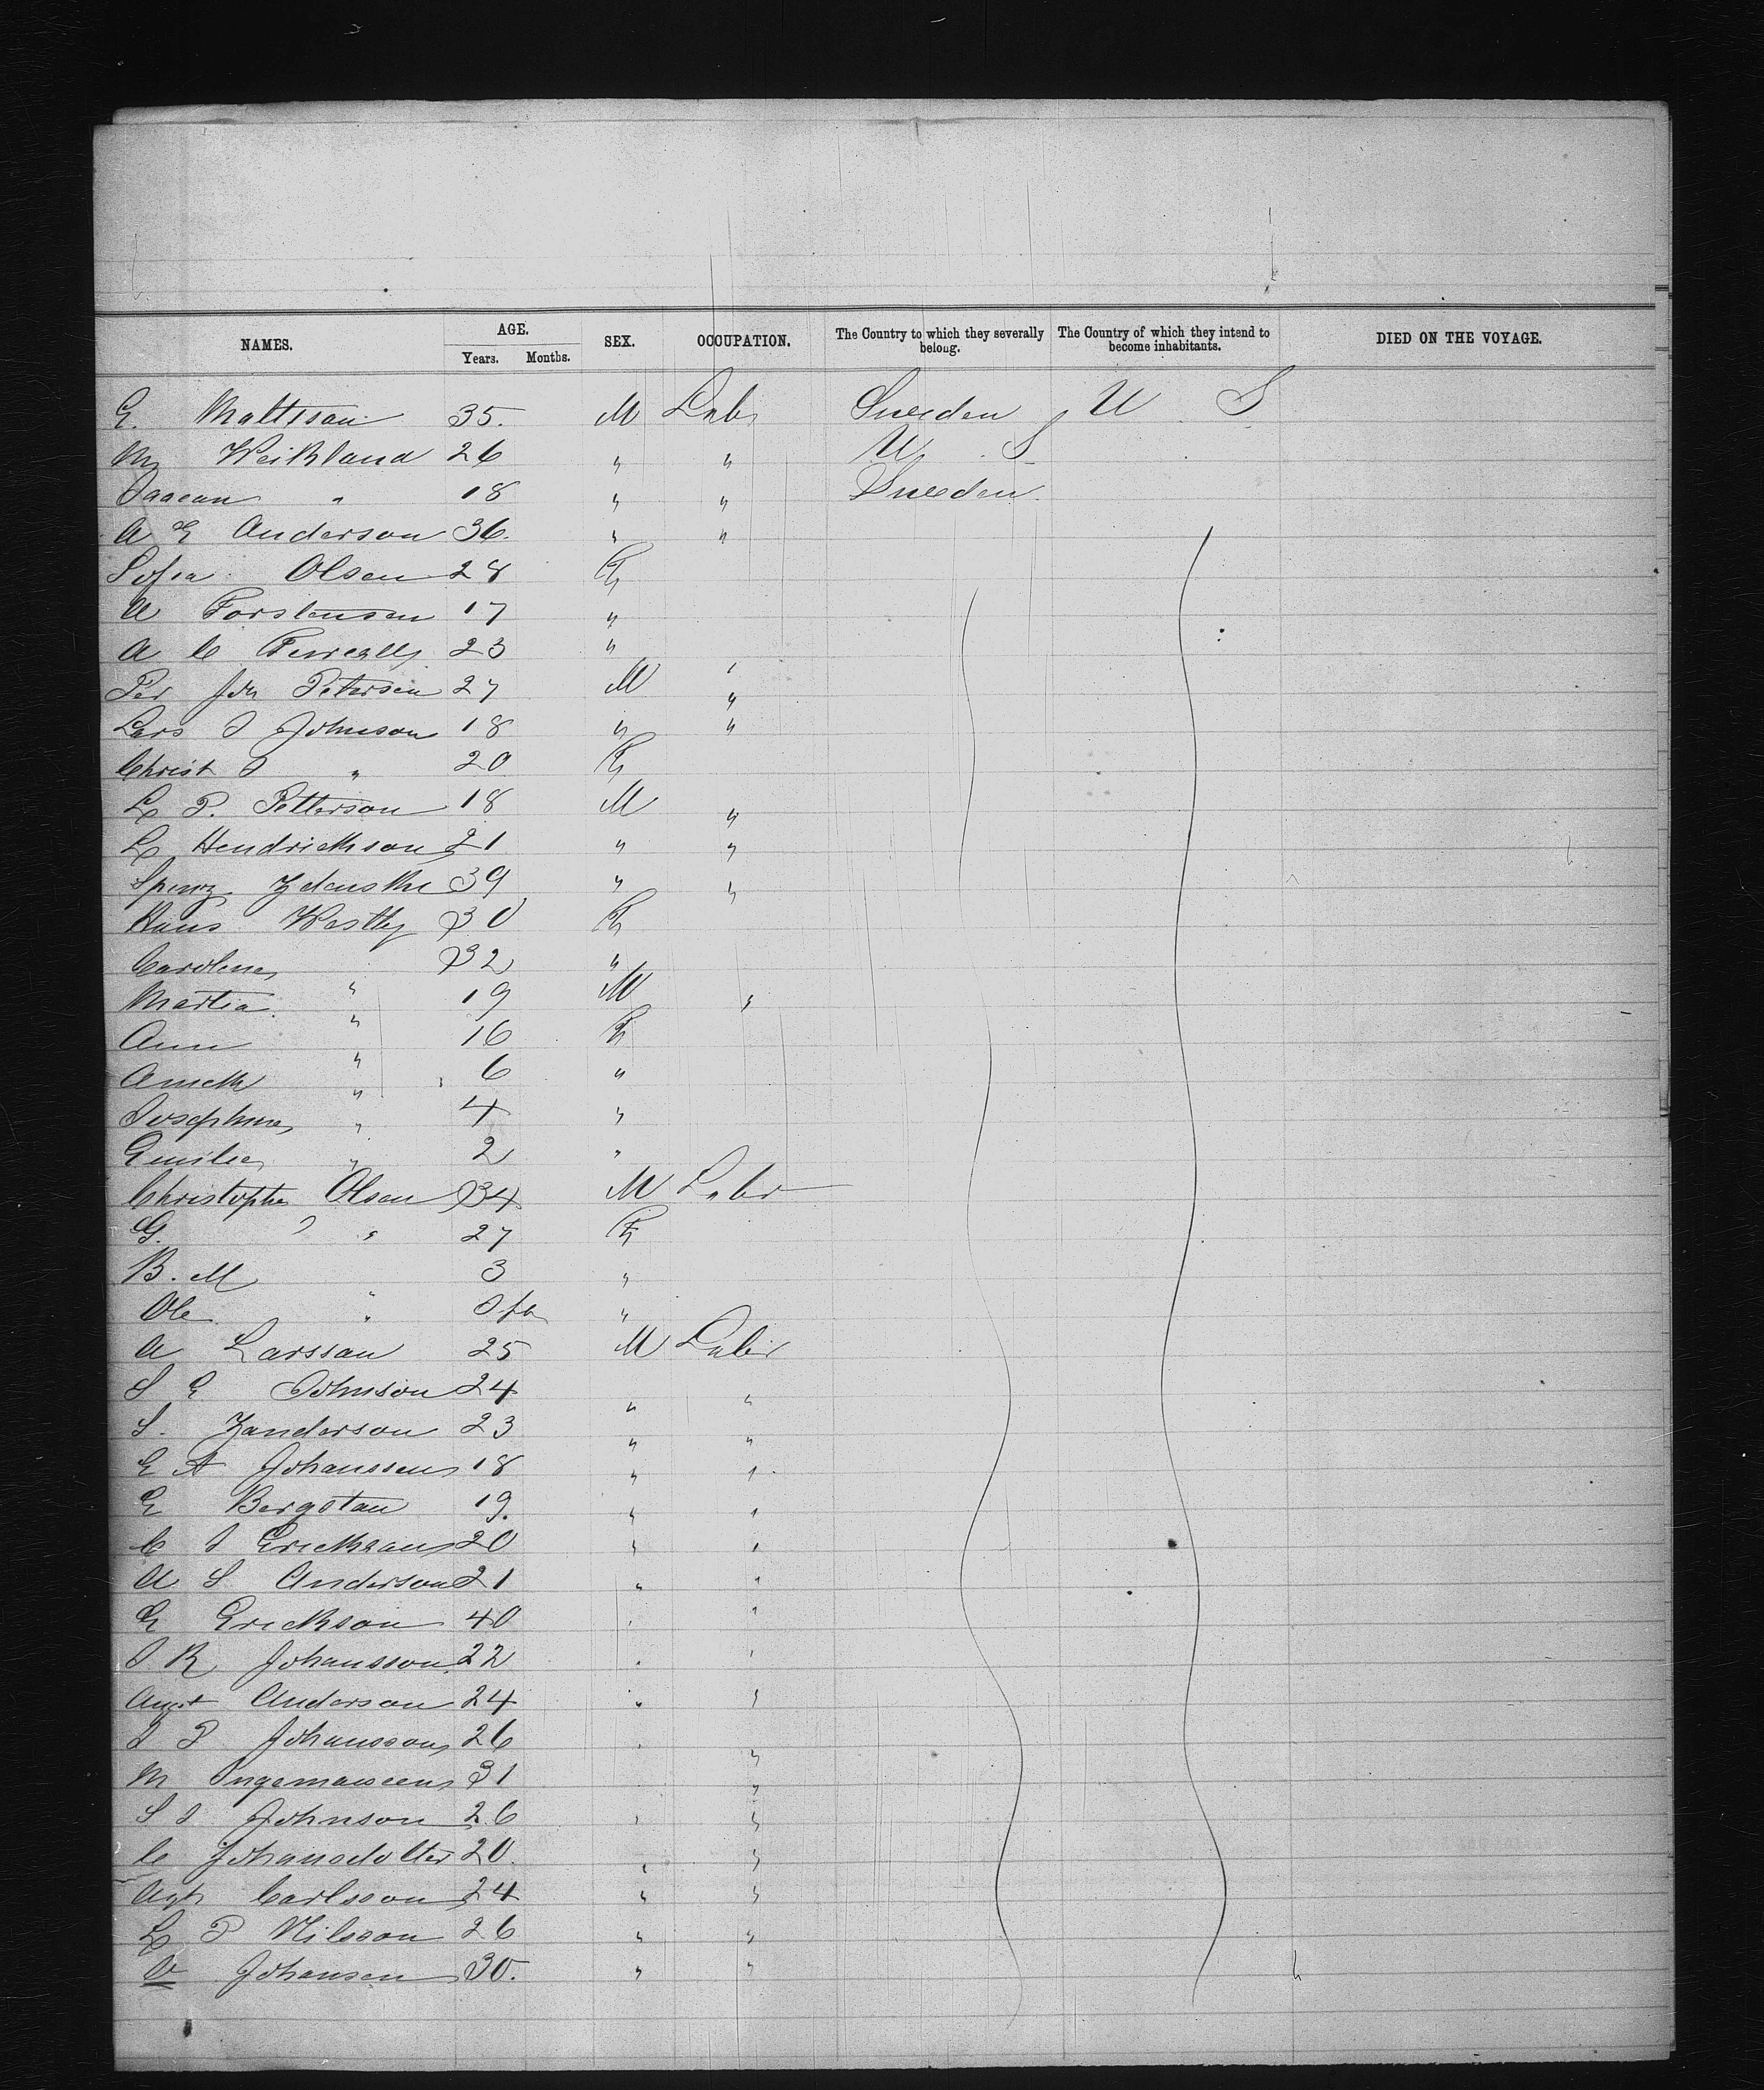 NAMES. AGE. SEX. OCCUPATION. The Country to which they severally belong. The Country of which they intend to become inhabitants. DIED ON THE VOYAGE.
Years. Months.
E. Mattsson 35. M Labr Sweden U S
M 26 " " U. S
" 18 " " Sweden
A E Anderson 36. " "
Sofia Olsen 28 F
A Torstensen 17 "
A C 23 "
Per Joh Petersen 27 M "
Lars J Johnson 18 " "
Christ J " 20 F
L P. Petterson 18 M "
L Hendrickson 21 " "
39 " "
Hans Westby 30 F
Caroline 32 "
Martia " 19 M "
Ann " 16 F
" 6 "
Josephine " 4 "
Emilie " 2 "
Christopher Olsen 34 M Labr
G. J " 27 F
B. M 3 "
Ole " "
A Larsson 25 M Labr
S E Johnson 24 " "
S. Zanderson 23 " "
E A Johanssen 18 " "
E 19. " "
C J Erickson 20 " "
A S Anderson 21 " "
E Erickson 40 " "
J R Johansson 22 " "
August Anderson 24 " "
J P Johansson 26 " "
M 31 "
S J Johnson 26 " "
C Johansdotter 20. " "
Carlsson 24 " "
L P Nilsson 26 " "
Johansen 30. " "